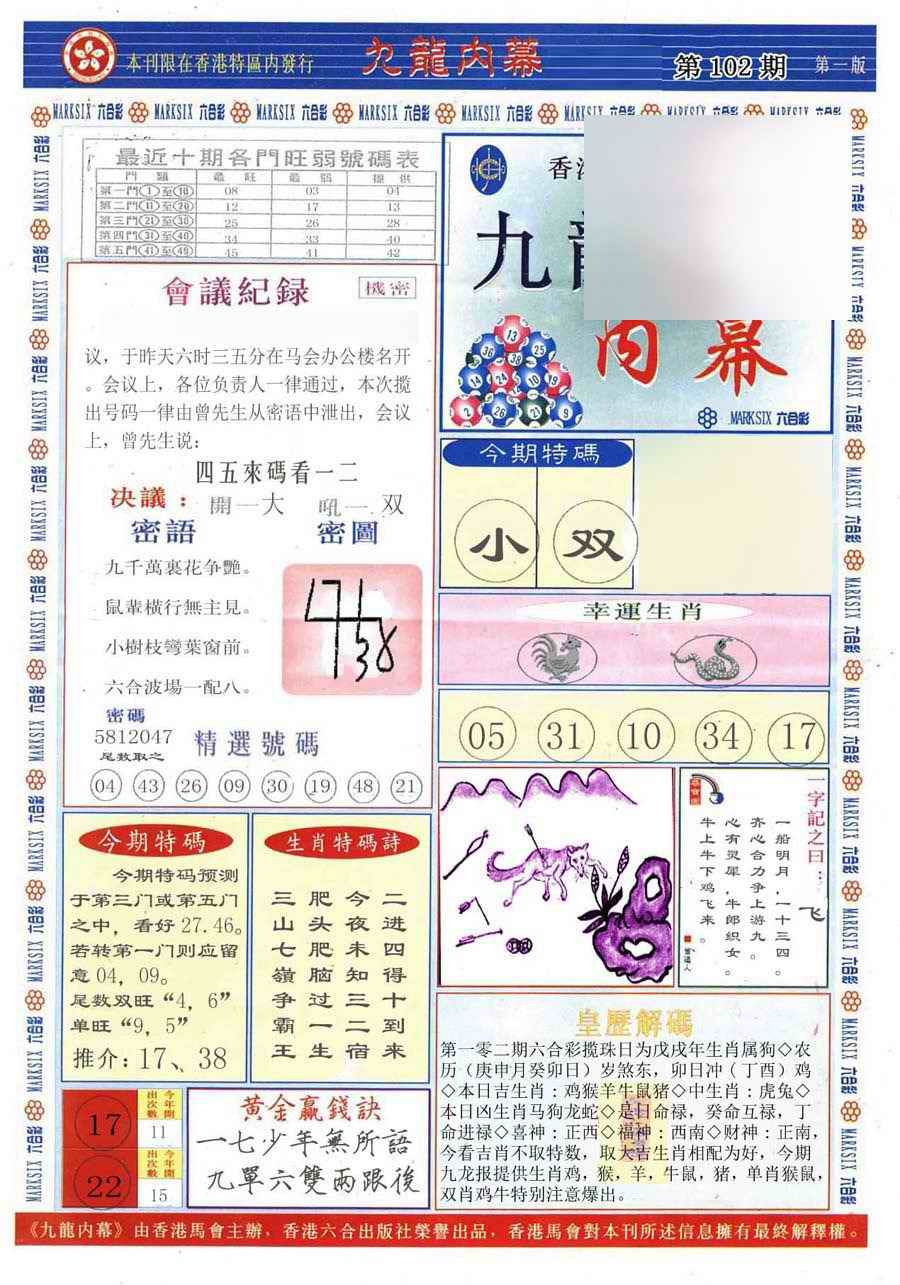 本刊限在香港特區内發行
九龍内幕
第 102 期
第一版
MARKSIX 六合彩
最近十期各門旺弱號碼表
門 類 最 旺 最 弱 提 供
第一門①至⑩ 08 03 04
第二門⑪至⑳ 12 17 13
第三門㉑至㉚ 25 26 28
第四門㉛至㊵ 34 33 40
第五門㊶至㊾ 45 41 42
會議紀録
機密
议，于昨天六时三五分在马会办公楼名开
。会议上，各位负责人一律通过，本次揽
出号码一律由曾先生从密语中泄出，会议
上，曾先生说：
四五來碼看一二
决議：
開一大 吼一 双
密語
密圖
九千萬裏花争艷。
鼠輩横行無主見。
小樹枝彎葉窗前。
六合波場一配八。
密碼
5812047
尾数取之
精選號碼
04 43 26 09 30 19 48 21
九
内幕
13
36 38 25
14 24 10 19
2 26 21 9
MARKSIX 六合彩
今期特碼
小 双
幸運生肖
05 31 10 34 17
一字記之曰：飞
一船明月，一十三四。
齐心合力争上游九。
心有灵犀，牛郎织女。
牛上牛下鸡飞来。
今期特碼
今期特码预测
于第三门或第五门
之中，看好 27.46。
若转第一门则应留
意 04，09。
尾数双旺“4，6”
单旺“9，5”
推介：17、38
生肖特碼詩
二进四得十到来
今夜未知三二宿
肥头肥脑过一生
三山七嶺争霸王
皇歷解碼
第一零二期六合彩揽珠日为戊戌年生肖属狗◇农
历（庚申月癸卯日）岁煞东，卯日冲（丁酉）鸡
◇本日吉生肖：鸡猴羊牛鼠猪◇中生肖：虎兔◇
本日凶生肖马狗龙蛇◇是日命禄，癸命互禄，丁
命进禄◇喜神：正西◇福神：西南◇财神：正南，
今看吉肖不取特数，取大吉生肖相配为好，今期
九龙报提供生肖鸡，猴，羊，牛鼠，猪，单肖猴鼠，
双肖鸡牛特别注意爆出。
17
今年開出次數
11
22
今年開出次數
15
黄金贏錢訣
一七少年無所語
九單六雙兩跟後
《九龍内幕》由香港馬會主辦，香港六合出版社榮譽出品，香港馬會對本刊所述信息擁有最終解釋權。